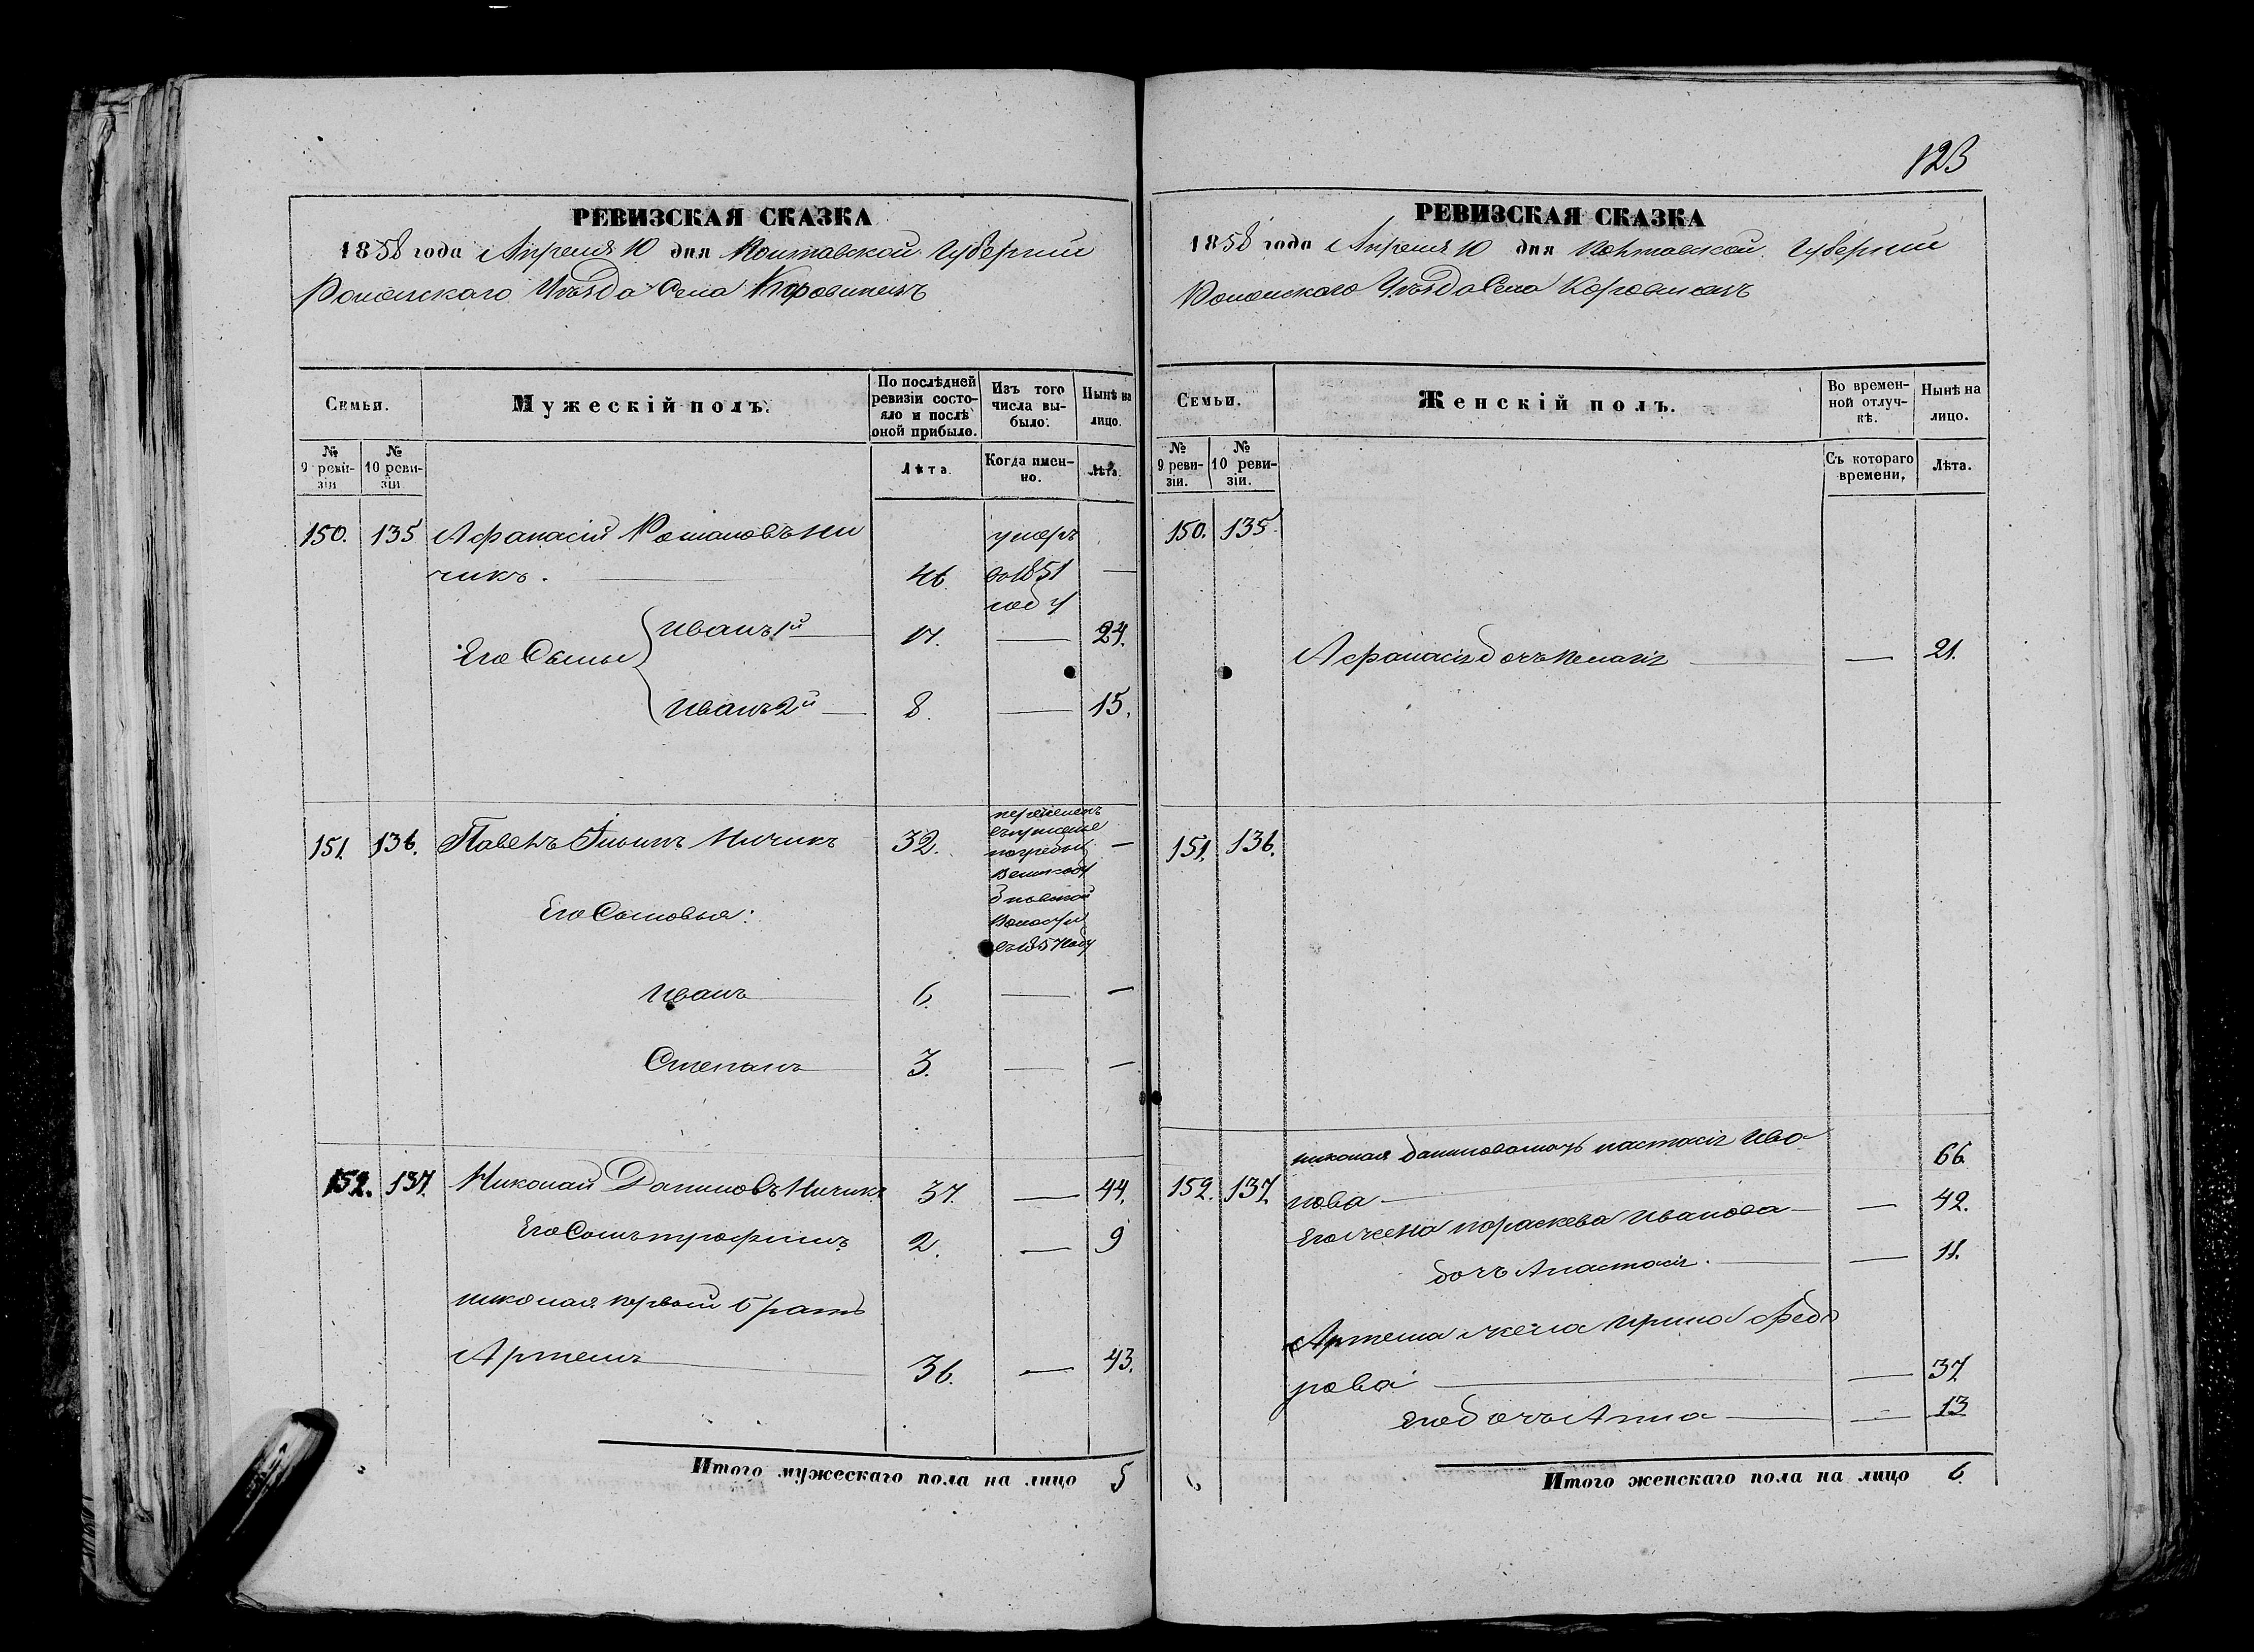 РЕВИЗСКАЯ СКАЗКА
1858 года Апреля 10 дня Полтавской Губернии
Роменскаго Уезда Села Коровинецъ
Семьи.
Мужескій полъ.
По послѣдней ревизіи состо-
яло и послѣ оной прибыло.
Изъ того числа вы-
было.
Нынѣ на лицо.
№ 9 реви-
зіи
№ 10 реви-
зіи.
Лѣта.
Когда имен-
но.
Лѣта.
150. 135 Афанасій Романовъ Ни умеръ
чикъ. 46. во 1851 —
году
Его Сыны Иванъ 1й 17. — 24.
Иванъ 2й 8. — 15.
151. 136. Павелъ Ильинъ Ничикъ 32. —
Его Сыновья:
Иванъ 6. — —
Степанъ 3. — —
152. 137. Николай Даниловъ Ничикъ 37. — 44.
Его Сынъ трофимъ 2. — 9
николая первый братъ
Артемъ 36. — 43.
Итого мужескаго пола на лицо 5
123
РЕВИЗСКАЯ СКАЗКА
1858 года Апреля 10 дня Полтавской Губернии
Роменскаго Уезда Села Коровинецъ
Семьи.
Женскій полъ.
Во времен-
ной отлуч-
кѣ.
Нынѣ на лицо.
№ 9 реви-
зіи.
№ 10 реви-
зіи.
Съ котораго времени.
Лѣта.
150. 135.
Афанасія дочь Пелагія — 21.
151. 136.
152. 137. николая данилова мать настасія Ива 66.
нова
Его жена параскева Иванова — 42.
дочь Анастасія. — 11.
Артема жена Ирина Федо
рова — 37.
Его дочь Анна — 13
Итого женскаго пола на лицо 6.